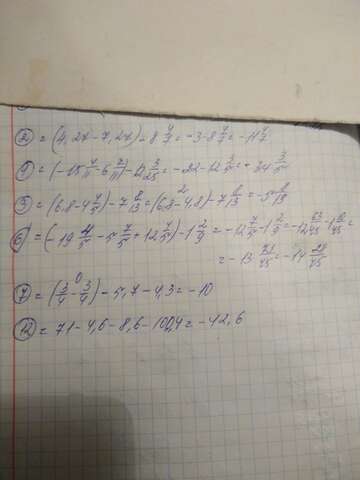 ② = (4,27 - 7,27) - 8 4/7 = -3 - 8 4/7 = -11 4/7
= (-15 4/11 - 6 7/11) - 12 3/25 = -22 - 12 3/5 = - 34 3/5
= (6,8 - 4 4/5) - 7 8/13 = (6,8 - 4,8) - 7 8/13 = -5 8/13
⑥ = (-19 4/5 - 5 7/5 + 12 4/5) - 1 2/9 = -12 7/5 - 1 2/9 = -12 63/45 - 1 10/45 =
= -13 73/45 = -14 28/45
⑦ = (3/4 - 3/4) - 5,7 - 4,3 = -10
⑫ = 71 - 4,6 - 8,6 - 100,4 = -42,6